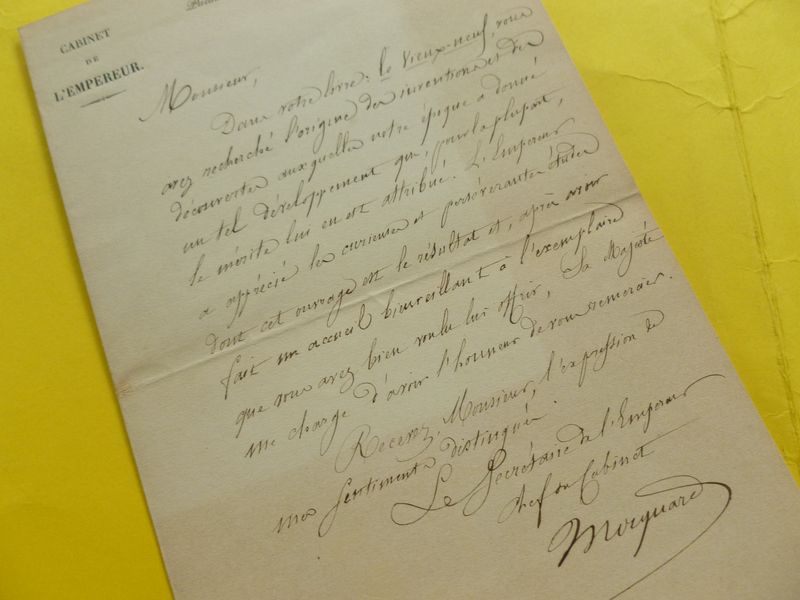 CABINET
DE
L'EMPEREUR.
Monsieur,
Dans votre livre: le Vieux-neuf, vous
avez recherché l'origine des inventions et des
découvertes auxquelles notre époque a donné
un tel développement que, pour la plupart,
le mérite lui en est attribué. L'Empereur
a apprécié les curieuses et persévérantes études
dont cet ouvrage est le résultat et, après avoir
fait un accueil bienveillant à l'exemplaire
que vous avez bien voulu lui offrir, Sa Majesté
me charge d'avoir l'honneur de vous remercier.
Recevez, Monsieur, l'expression de
mes sentiments distingués.
Le Secrétaire de l'Empereur
Chef du Cabinet
Mocquard